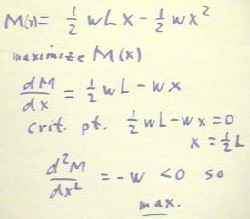 M(x)= 1/2 wLx - 1/2 wx²
maximize M(x)
dM/dx = 1/2 wL - wx
crit. pt. 1/2 wL - wx = 0
x = 1/2 L
d²M/dx² = -w < 0 so
max.